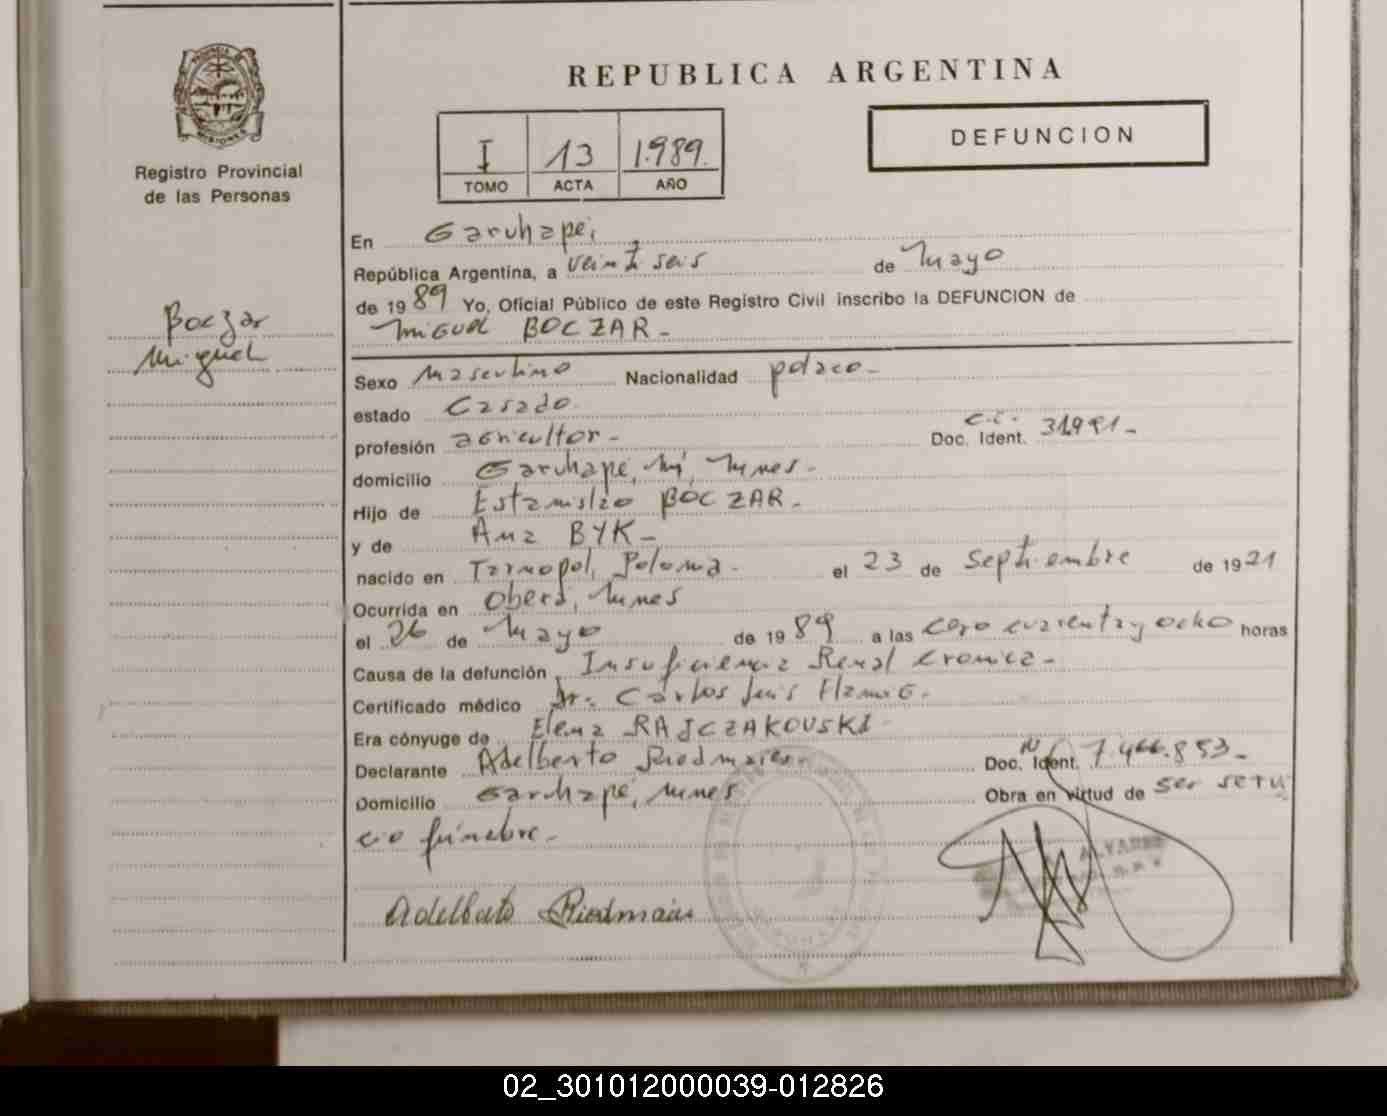 REPUBLICA ARGENTINA
PROVINCIA DE
MISIONES
Registro Provincial
de las Personas
I 13 1.989.
TOMO ACTA AÑO
DEFUNCION
Boczar
Miguel
En Garuhapé,
República Argentina, a veinti seis de Mayo
de 1989 Yo, Oficial Público de este Registro Civil inscribo la DEFUNCION de
MIGUEL BOCZAR-
Sexo Masculino Nacionalidad polaco-
estado Casado
profesión agricultor- Doc. Ident. C.I. 31991-
domicilio Garuhapé, Mnes.
Hijo de Estanislao BOCZAR-
y de Ana BYK-
nacido en Tarnopol, Polonia- el 23 de Septiembre de 1921
Ocurrida en Oberá, Mnes
el 26 de Mayo de 1989 a las cero cuarenta y ocho horas
Causa de la defunción Insuficiencia Renal Cronica-
Certificado médico Dr. Carlos Luis
Era cónyuge de Elena RAJCZAKOUSKI
Declarante Adelberto Riedmaier Doc. Ident. 7.466.853-
Domicilio Garuhapé, Mnes Obra en virtud de ser servi
cio fúnebre-
Adelberto Riedmaier
ALVAREZ
02_301012000039-012826